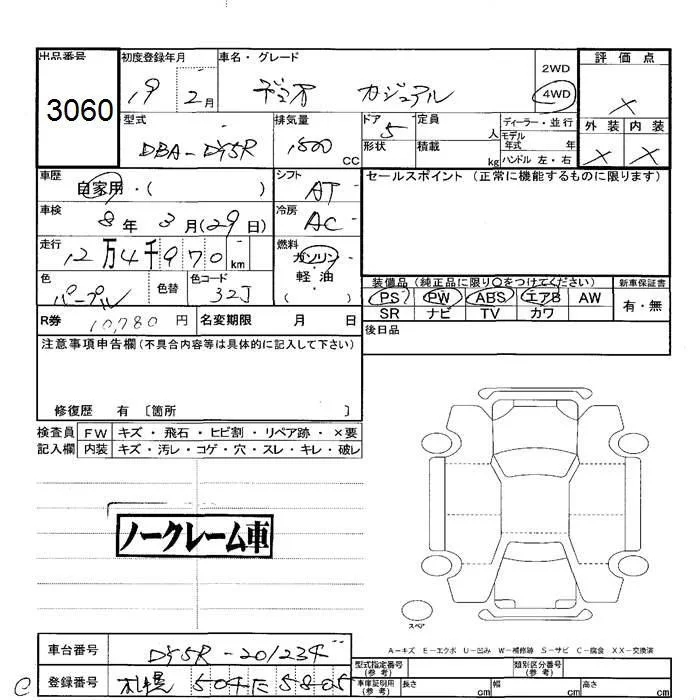 出品番号 初度登録年月 車名・グレード 評価点
3060 19 2月 デミオ カジュアル 2WD 4WD ×
型式 排気量 ドア 5 定員 人 ディーラー・並行 外装 内装
DBA-DY5R 1500 CC 形状 積載 kg モデル年式 年 ハンドル 左・右 × ×
車歴 自家用・( ) シフト AT セールスポイント (正常に機能するものに限ります)
車検 8年 3月(29日) 冷房 AC
走行 12万4千970km 燃料 ガソリン・軽油・( )
色 パープル 色替 色コード 32J
装備品(純正品に限り○をつけてください) 新車保証書
PS PW ABS エアB AW 有・無
SR ナビ TV カワ
R券 10,780円 名変期限 月 日 後日品
注意事項申告欄(不具合内容等は具体的に記入して下さい)
修復歴 有 〔箇所 〕
検査員記入欄 FW キズ・飛石・ヒビ割・リペア跡・×要
内装 キズ・汚レ・コゲ・穴・スレ・キレ・破レ
ノークレーム車
スペア
A-キズ E-エクボ U-凹み W-補修跡 S-サビ C-腐食 XX-交換済
車台番号 DY5R-201234 型式指定番号(参考) 類別区分番号(参考)
登録番号 札幌 504 に 5805 車庫証明用(参考) 長さ cm 幅 cm 高さ cm